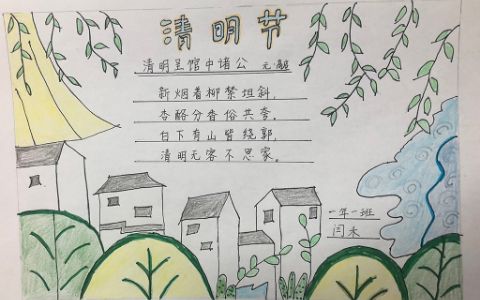 清明节
清明呈馆中诸公 元 敲
新烟着柳禁垣斜,
杏酪分香俗共夸。
白下有山皆绕郭,
清明无客不思家。
一年一班
闫禾